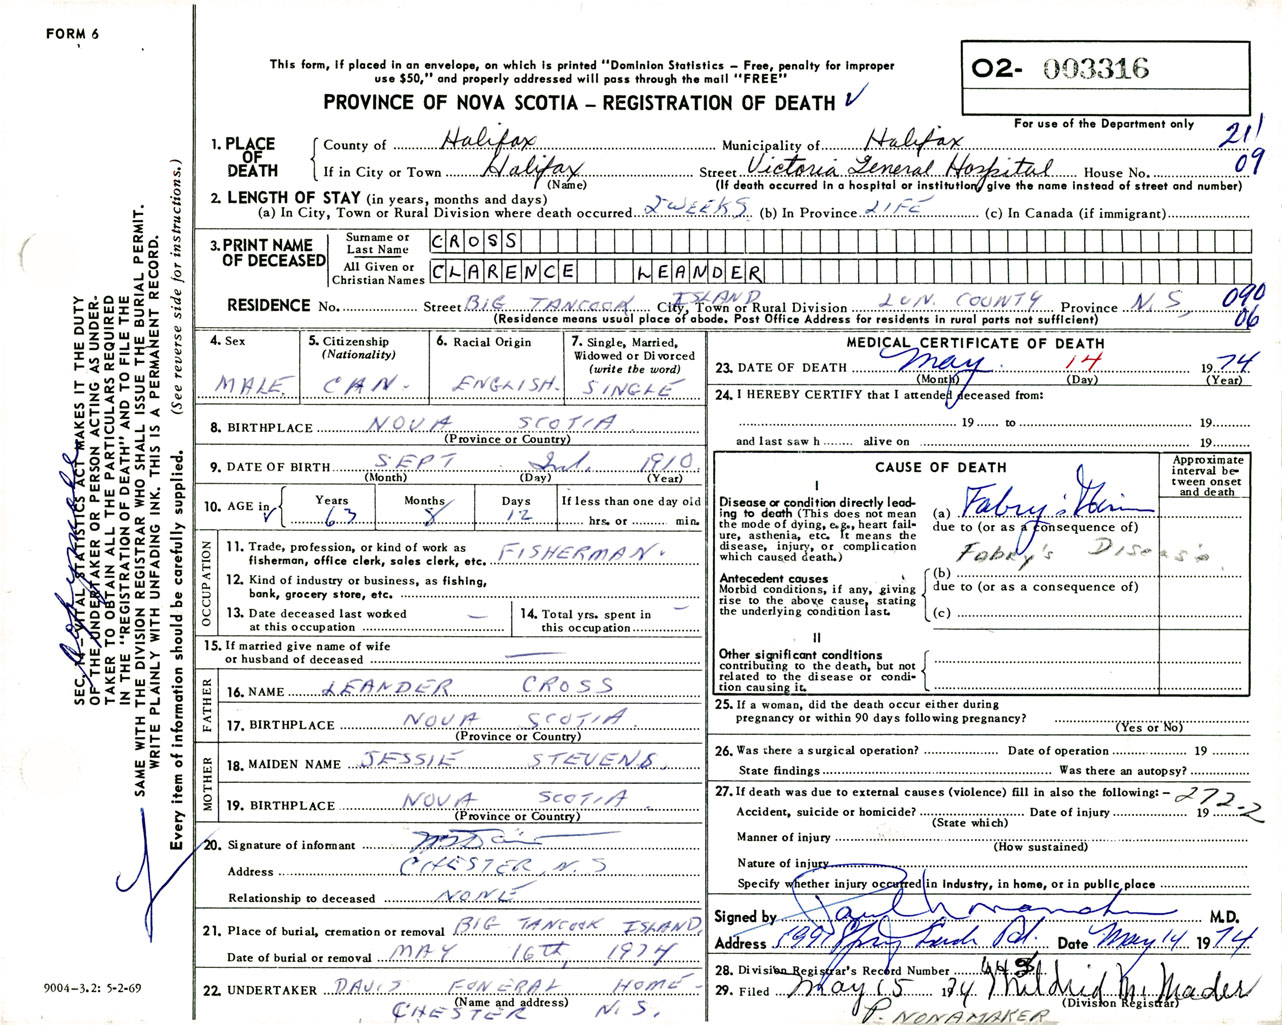 FORM 6
This form, if placed in an envelope, on which is printed "Dominion Statistics – Free, penalty for improper
use $50," and properly addressed will pass through the mail "FREE"
PROVINCE OF NOVA SCOTIA – REGISTRATION OF DEATH
02- 003316
For use of the Department only
21
09
1. PLACE OF DEATH
County of Halifax Municipality of Halifax
If in City or Town Halifax Street Victoria General Hospital House No.
(Name) (If death occurred in a hospital or institution, give the name instead of street and number)
2. LENGTH OF STAY (in years, months and days)
(a) In City, Town or Rural Division where death occurred 2 WEEKS (b) In Province LIFE (c) In Canada (if immigrant)
3. PRINT NAME OF DECEASED
Surname or Last Name CROSS
All Given or Christian Names CLARENCE LEANDER
RESIDENCE No. Street BIG TANCOOK ISLAND City, Town or Rural Division LUN. COUNTY Province N.S,
090
06
(Residence means usual place of abode. Post Office Address for residents in rural parts not sufficient)
4. Sex
MALE
5. Citizenship (Nationality)
CAN.
6. Racial Origin
ENGLISH.
7. Single, Married, Widowed or Divorced (write the word)
SINGLE
8. BIRTHPLACE NOVA SCOTIA
(Province or Country)
9. DATE OF BIRTH SEPT 2nd. 1910
(Month) (Day) (Year)
10. AGE in
Years 63
Months 8
Days 12
If less than one day old
hrs. or min.
OCCUPATION
11. Trade, profession, or kind of work as
fisherman, office clerk, sales clerk, etc. FISHERMAN.
12. Kind of industry or business, as fishing,
bank, grocery store, etc.
13. Date deceased last worked
at this occupation —
14. Total yrs. spent in
this occupation —
15. If married give name of wife
or husband of deceased —
FATHER
16. NAME LEANDER CROSS
17. BIRTHPLACE NOVA SCOTIA.
(Province or Country)
MOTHER
18. MAIDEN NAME JESSIE STEVENS.
19. BIRTHPLACE NOVA SCOTIA
(Province or Country)
20. Signature of informant
Address CHESTER, N.S
Relationship to deceased NONE
21. Place of burial, cremation or removal BIG TANCOOK ISLAND,
Date of burial or removal MAY 16th, 1974
22. UNDERTAKER DAVIS FUNERAL HOME-
(Name and address)
CHESTER N.S.
MEDICAL CERTIFICATE OF DEATH
23. DATE OF DEATH May 14 1974
(Month) (Day) (Year)
24. I HEREBY CERTIFY that I attended deceased from:
19 to 19
and last saw h alive on 19
CAUSE OF DEATH
Approximate interval between onset and death
I
Disease or condition directly lead-
ing to death (This does not mean
the mode of dying, e.g., heart fail-
ure, asthenia, etc. It means the
disease, injury, or complication
which caused death.)
(a) Fabry's
due to (or as a consequence of)
Fabry's Disease
Antecedent causes
Morbid conditions, if any, giving
rise to the above cause, stating
the underlying condition last.
(b)
due to (or as a consequence of)
(c)
II
Other significant conditions
contributing to the death, but not
related to the disease or condi-
tion causing it.
25. If a woman, did the death occur either during
pregnancy or within 90 days following pregnancy?
(Yes or No)
26. Was there a surgical operation? Date of operation 19
State findings Was there an autopsy?
27. If death was due to external causes (violence) fill in also the following: – 272-2
Accident, suicide or homicide? Date of injury 19
(State which)
Manner of injury
(How sustained)
Nature of injury
Specify whether injury occurred in industry, in home, or in public place
Signed by M.D.
Address Date May 14 1974
28. Division Registrar's Record Number 443
29. Filed May 15 1974 Mildred M. Mader
(Division Registrar)
P. NONAMAKER
SEC. 14—VITAL STATISTICS ACT MAKES IT THE DUTY
OF THE UNDERTAKER OR PERSON ACTING AS UNDER-
TAKER TO OBTAIN ALL THE PARTICULARS REQUIRED
IN THE "REGISTRATION OF DEATH" AND TO FILE THE
SAME WITH THE DIVISION REGISTRAR WHO SHALL ISSUE THE BURIAL PERMIT.
WRITE PLAINLY WITH UNFADING INK. THIS IS A PERMANENT RECORD.
Every item of information should be carefully supplied. (See reverse side for instructions.)
9004-3.2: 5-2-69